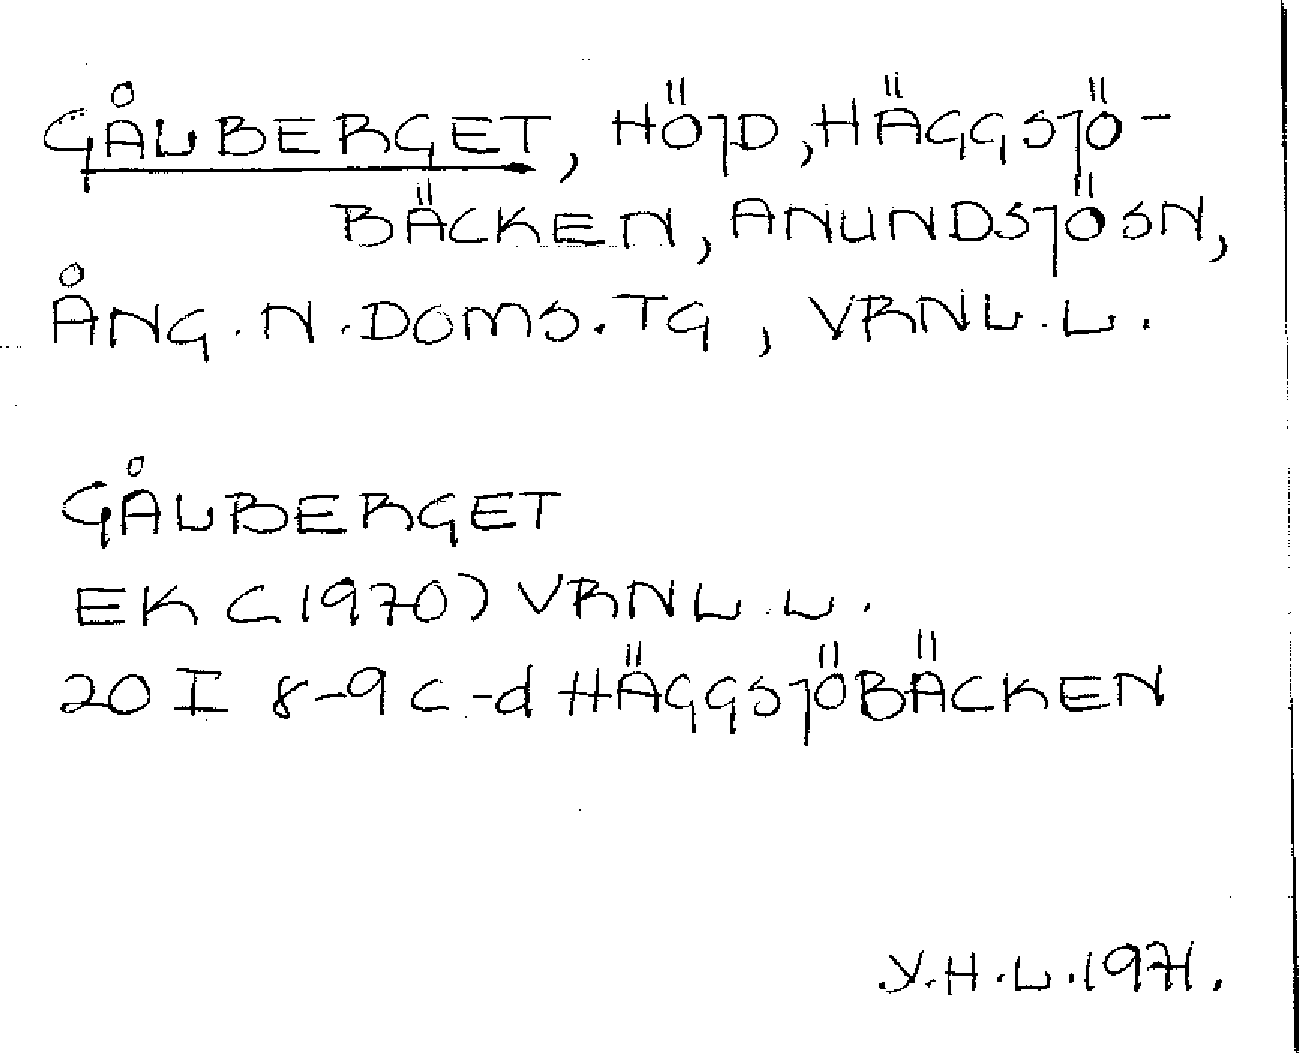 GÅLBERGET, HÖJD, HÄGGSJÖ-
BÄCKEN, ANUNDSJÖSN,
ÅNG.N.DOMS.TG, VRNL.L.
GÅLBERGET
EK (1970) VRNL.L.
20 I 8-9 c-d HÄGGSJÖBÄCKEN
Y.H.L.1971.